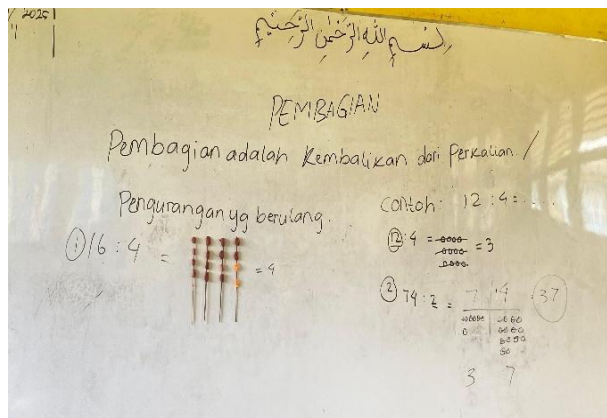 / 2025
بسم الله الرحمن الرحيم
PEMBAGIAN
Pembagian adalah Kembalikan dari Perkalian /
Pengurangan yg berulang.
Contoh: 12 : 4 = ....
① 16 : 4 = = 4
12 : 4 = = 3
② 74 : 2 = 7 14 = 37
3 7